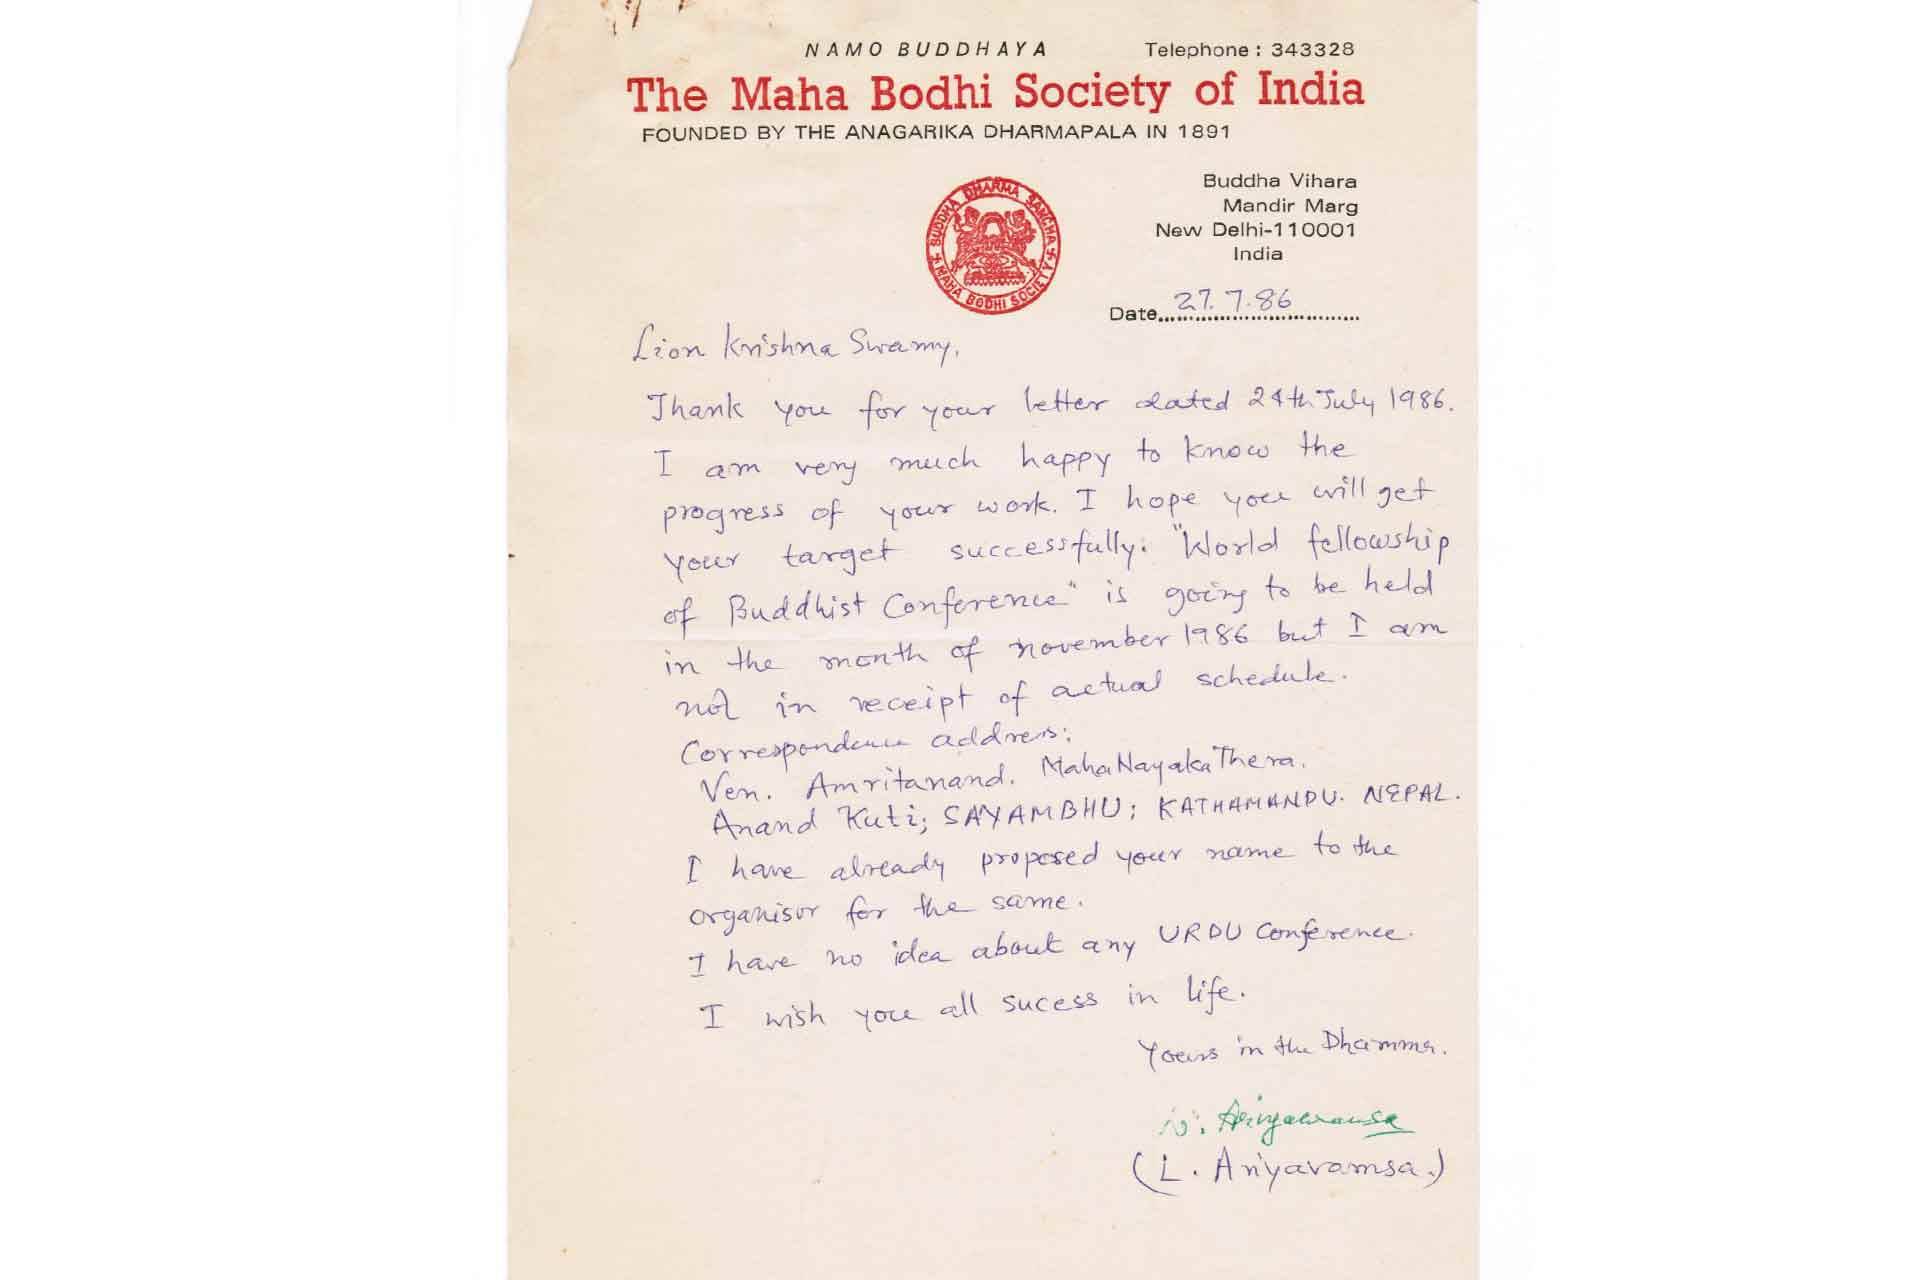 NAMO BUDDHAYA Telephone : 343328
The Maha Bodhi Society of India
FOUNDED BY THE ANAGARIKA DHARMAPALA IN 1891
BUDDHA DHARMA SANGHA
MAHA BODHI SOCIETY
Buddha Vihara
Mandir Marg
New Delhi-110001
India
Date 27.7.86
Lion Krishna Swamy,
Thank you for your letter dated 24th July 1986.
I am very much happy to know the
progress of your work. I hope you will get
your target successfully. "World fellowship
of Buddhist Conference" is going to be held
in the month of november 1986 but I am
not in receipt of actual schedule.
Correspondence address:
Ven. Amritanand. MahaNayakaThera.
Anand Kuti; SAYAMBHU; KATHAMANDU. NEPAL.
I have already proposed your name to the
organisor for the same.
I have no idea about any URDU Conference.
I wish you all sucess in life.
Yours in the Dhamma.
Ariyawansa
(L. Ariyavamsa.)